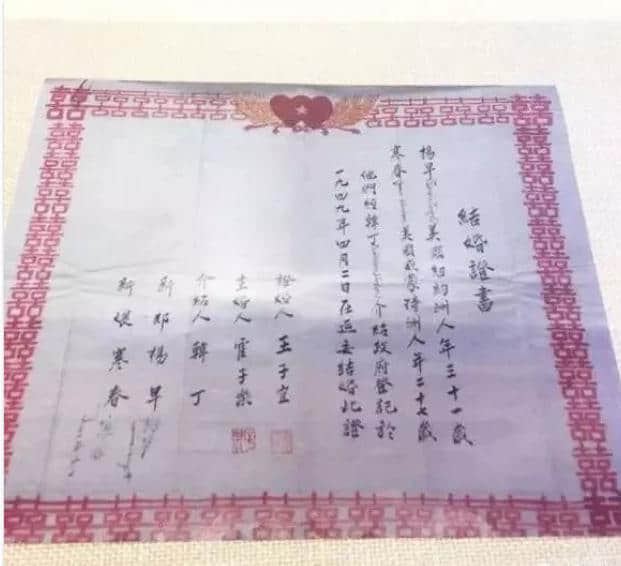 結婚證書
楊早 美國紐約洲人年三十一歲
寒春 美國威蒙特洲人年二十七歲
他們經韓丁 介紹政府登記於
一九四九年四月二日在延安結婚此證
證婚人 王子宜
主婚人 霍子樂
介紹人 韓丁
新郎 楊早
新娘 寒春